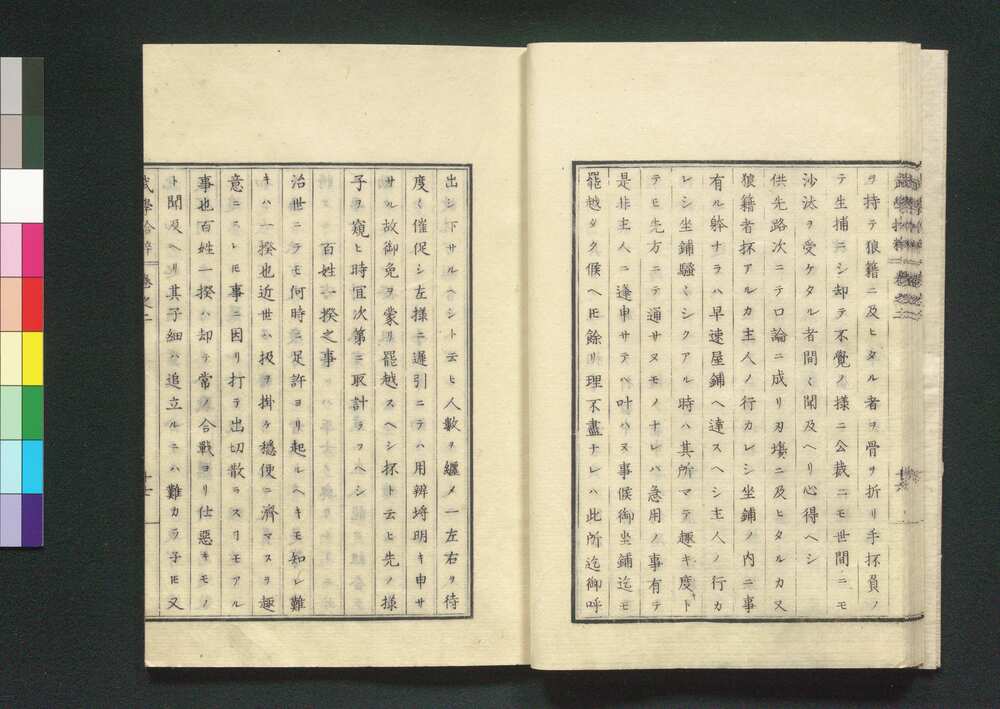 ヲ持テ狼籍ニ及ヒタル者ヲ骨ヲ折リ手抔負ノ
テ生捕ニシ却テ不覺ノ様ニ公裁ニモ世間ニモ
沙汰ヲ受ケタル者間〻聞及ヘリ心得ヘシ
供先路次ニテ口論ニ成リ刃塲ニ及ヒタルカ又
狼籍者抔アルカ主人ノ行カレシ坐鋪ノ内ニ事
有ル躰ナラハ早速屋鋪ヘ達スヘシ主人ノ行カ
レシ坐鋪騒〻シクアル時ハ其所マテ趣キ度ト
テモ先方ニテ通サヌモノナレハ急用ノ事有テ
是非主人ニ逢申サテハ叶ハヌ事候御坐鋪迄モ
罷越タク候ヘ𪜈餘リ理不盡ナレハ此所迄御呼
出シ下サルヘシト云ヒ人數ヲ纏メ一左右ヲ待
度〻催促シ左様ニ遲引ニテハ用辨埒明キ申サ
サル故御免ヲ蒙リ罷越スヘシ抔ト云ヒ先ノ様
子ヲ窺ヒ時宜次第ニ取計ラフヘシ
百姓一揆之事
治世ニテモ何時ニ足許ヨリ起ルヘキモ知レ難
キハ一揆也近世ハ扱ヲ掛ケ穏便ニ濟マスヲ趣
意ニスレ𪜈事ニ因リ打テ出切散ラスヿモアル
事也百姓一揆ハ却テ常ノ合戰ヨリ仕惡キモノ
ト聞及ヘリ其子細ハ追立ルニハ難カラ子𪜈又